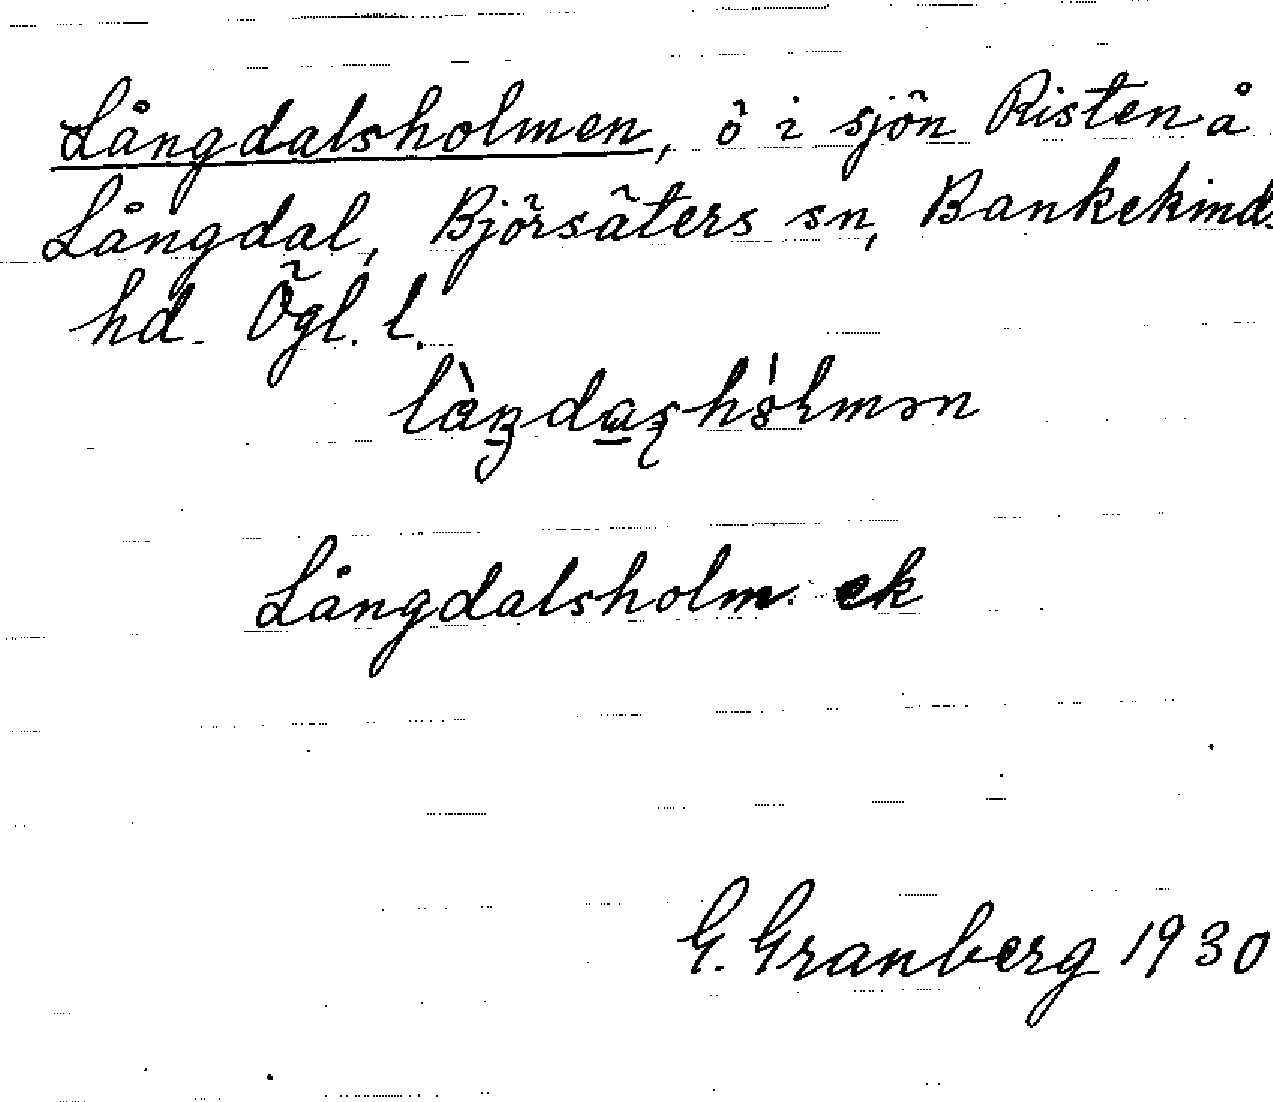 Långdalsholmen, ö i sjön Risten å
Långdal, Björsäters sn, Bankekind.
hd. Ögl. l.
Långdalsholm. ek
G. Granberg 1930